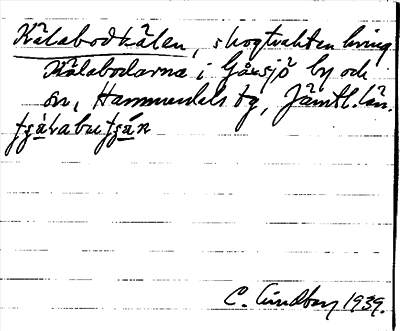 Kälabodkälen, skogtrakten kring
Kälabodarna i Gåxsjö by och
sn, Hammerdals tg, Jämtl. län.
C. Lindberg 1939.